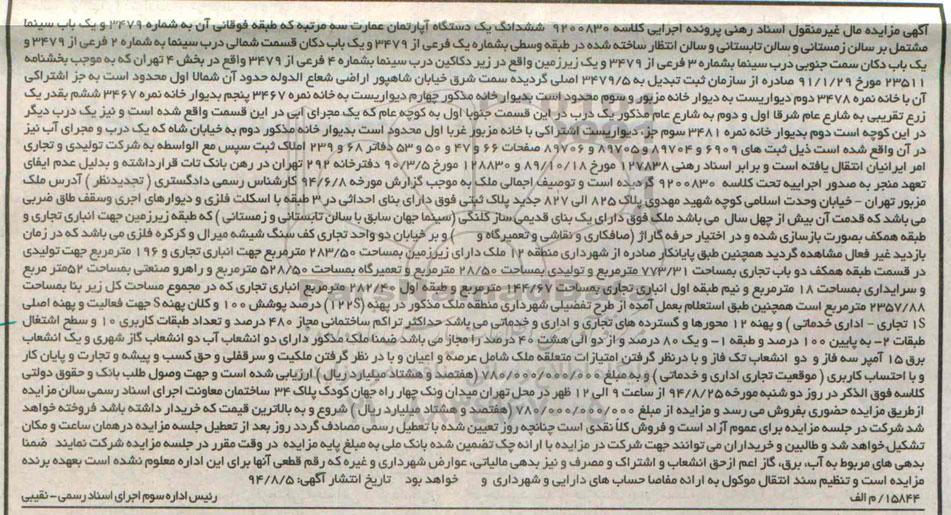 آگهی مزایده مال غیرمنقول اسناد رهنی پرونده اجرایی کلاسه ۹۲۰۰۸۳۰ ششدانگ یک دستگاه آپارتمان عمارت سه مرتبه که طبقه فوقانی آن به شماره ۳۴۷۹ و یک باب سینما
مشتمل بر سالن زمستانی و سالن تابستانی و سالن انتظار ساخته شده در طبقه وسطی بشماره یک فرعی از ۳۴۷۹ و یک باب دکان قسمت شمالی درب سینما به شماره ۲ فرعی از ۳۴۷۹ و
یک باب دکان سمت جنوبی درب سینما بشماره ۳ فرعی از ۳۴۷۹ و یک زیرزمین واقع در زیر دکاکین درب سینما بشماره ۴ فرعی از ۳۴۷۹ واقع در بخش ۴ تهران که به موجب بخشنامه
۲۳۵۱۱ مورخ ۹۱/۱/۲۹ صادره از سازمان ثبت تبدیل به ۳۴۷۹/۵ اصلی گردیده سمت شرق خیابان شاهپور اراضی شعاع الدوله حدود آن شمالا اول محدود است به جز اشتراکی
آن با خانه نمره ۳۴۷۸ دوم دیواریست به دیوار خانه مزبور و سوم محدود است بدیوار خانه مذکور چهارم دیواریست به خانه نمره ۳۴۶۷ پنجم بدیوار خانه نمره ۳۴۶۷ ششم بقدر یک
زرع تقریبی به شارع عام شرقا اول و دوم به شارع عام مذکور یک درب در این قسمت جنوبا اول به کوچه عام که یک مجرای آبی در این قسمت واقع شده است و نیز یک درب دیگر
در این کوچه است دوم بدیوار خانه نمره ۳۴۸۱ سوم جز دیواریست اشتراکی با خانه مزبور غربا اول محدود است بدیوار خانه مذکور دوم به خیابان شاه که یک درب و مجرای آب نیز
در آن واقع شده است ذیل ثبت های ۶۹۰۹ و ۸۹۷۰۴ و ۸۹۷۰۵ و ۸۹۷۰۶ صفحات ۶۶ و ۴۷ و ۵۰ و ۵۳ دفاتر ۶۸ و ۲۳۹ املاک ثبت سپس مع الواسطه به شرکت تولیدی و تجاری
امر ایرانیان انتقال یافته است و برابر اسناد رهنی ۱۲۷۸۳۸ مورخ ۸۹/۱۰/۱۸ و ۱۲۸۸۳۰ مورخ ۹۰/۳/۵ دفترخانه ۲۹۲ تهران در رهن بانک تات قرارداشته و بدلیل عدم ایفای
تعهد منجر به صدور اجراییه تحت کلاسه ۹۲۰۰۸۳۰ گردیده است و توصیف اجمالی ملک به موجب گزارش مورخه ۹۴/۶/۸ کارشناس رسمی دادگستری ( تجدیدنظر ) آدرس ملک
مزبور تهران - خیابان وحدت اسلامی کوچه شهید مهدوی پلاک ۸۲۵ الی ۸۲۷ جدید پلاک ثبتی فوق دارای بنای احداثی در ۳ طبقه با اسکلت فلزی و دیوارهای آجری وسقف طاق ضربی
می باشد که قدمت آن بیش از چهل سال می باشد ملک فوق دارای یک بنای قدیمی ساز کلنگی (سینما جهان سابق با سالن تابستانی و زمستانی ) که طبقه زیرزمین جهت انباری تجاری و
طبقه همکف بصورت بازسازی شده و در اختیار حرفه گاراژ (صافکاری و نقاشی و تعمیرگاه و ) و بر خیابان دو واحد تجاری کف سنگ شیشه میرال و کرکره فلزی می باشد که در زمان
بازدید غیر فعال مشاهده گردید همچنین طبق پایانکار صادره از شهرداری منطقه ۱۲ ملک دارای زیرزمین بمساحت ۲۸۳/۵۰ مترمربع جهت انباری تجاری و ۱۹۶ مترمربع جهت تولیدی
در قسمت طبقه همکف دو باب تجاری بمساحت ۷۷۳/۳۱ مترمربع و تولیدی بمساحت ۲۸/۵۰ مترمربع و تعمیرگاه بمساحت ۵۲۸/۵۰ مترمربع و راهرو صنعتی بمساحت ۵۲متر مربع
و سرایداری بمساحت ۱۸ مترمربع و نیم طبقه اول انباری تجاری بمساحت ۱۴۴/۶۷ مترمربع و طبقه اول ۲۸۲/۴۰ مترمربع انباری تجاری که در مجموع مساحت کل زیر بنا بمساحت
۲۳۵۷/۸۸ مترمربع است همچنین طبق استعلام بعمل آمده از طرح تفضیلی شهرداری منطقه ملک مذکور در پهنه (S۱۲۲) درصد پوشش ۱۰۰ و کلان پهنهS جهت فعالیت و پهنه اصلی
S۱ تجاری - اداری خدماتی ) و پهنه ۱۲ محورها و گسترده های تجاری و اداری و خدماتی می باشد حداکثر تراکم ساختمانی مجاز ۴۸۰ درصد و تعداد طبقات کاربری ۱۰ و سطح اشتغال
طبقات ۲- به پایین ۱۰۰ درصد و طبقه ۱- و یک ۸۰ درصد و از دو الی هشت ۴۰ درصد را مجاز می باشد ضمنا ملک مذکور دارای دو انشعاب آب دو انشعاب گاز شهری و یک انشعاب
برق ۱۵ آمپر سه فاز و دو انشعاب تک فاز و با درنظر گرفتن امتیازات متعلقه ملک شامل عرصه و اعیان و با در نظر گرفتن ملکیت و سرقفلی و حق کسب و پیشه و تجارت و پایان کار
و با احتساب کاربری ( موقعیت تجاری اداری و خدماتی ) و به مبلغ ۷۸۰/۰۰۰/۰۰۰/۰۰۰ (هفتصد و هشتاد میلیارد ریال ) ارزیابی شده است و جهت وصول طلب بانک و حقوق دولتی
کلاسه فوق الذکر در روز دو شنبه مورخه ۹۴/۸/۲۵ از ساعت ۹ الی ۱۲ ظهر در محل تهران میدان ونک چهار راه جهان کودک پلاک ۳۴ ساختمان معاونت اجرای اسناد رسمی سالن مزایده
ازطریق مزایده حضوری بفروش می رسد و مزایده از مبلغ ۷۸۰/۰۰۰/۰۰۰/۰۰۰ (هفتصد و هشتاد میلیارد ریال ) شروع و به بالاترین قیمت که خریدار داشته باشد فروخته خواهد
شد شرکت در جلسه مزایده برای عموم آزاد است و فروش کلا نقدی است چنانچه روز تعیین شده با تعطیل رسمی مصادف گردد روز بعد از تعطیل جلسه مزایده درهمان ساعت و مکان
تشکیل خواهد شد و طالبین و خریداران می توانند جهت شرکت در مزایده با ارائه چک تضمین شده بانک ملی به مبلغ پایه مزایده در وقت مقرر در جلسه مزایده شرکت نمایند ضمنا
بدهی های مربوط به آب، برق، گاز اعم ازحق انشعاب و اشتراک و مصرف و نیز بدهی مالیاتی، عوارض شهرداری و غیره که رقم قطعی آنها برای این اداره معلوم نشده است بعهده برنده
مزایده است و تنظیم سند انتقال موکول به ارائه مفاصا حساب های دارایی و شهرداری و خواهد بود تاریخ انتشار آگهی: ۹۴/۸/۵
۱۵۸۴۴/ م الف رئیس اداره سوم اجرای اسناد رسمی - نقیبی